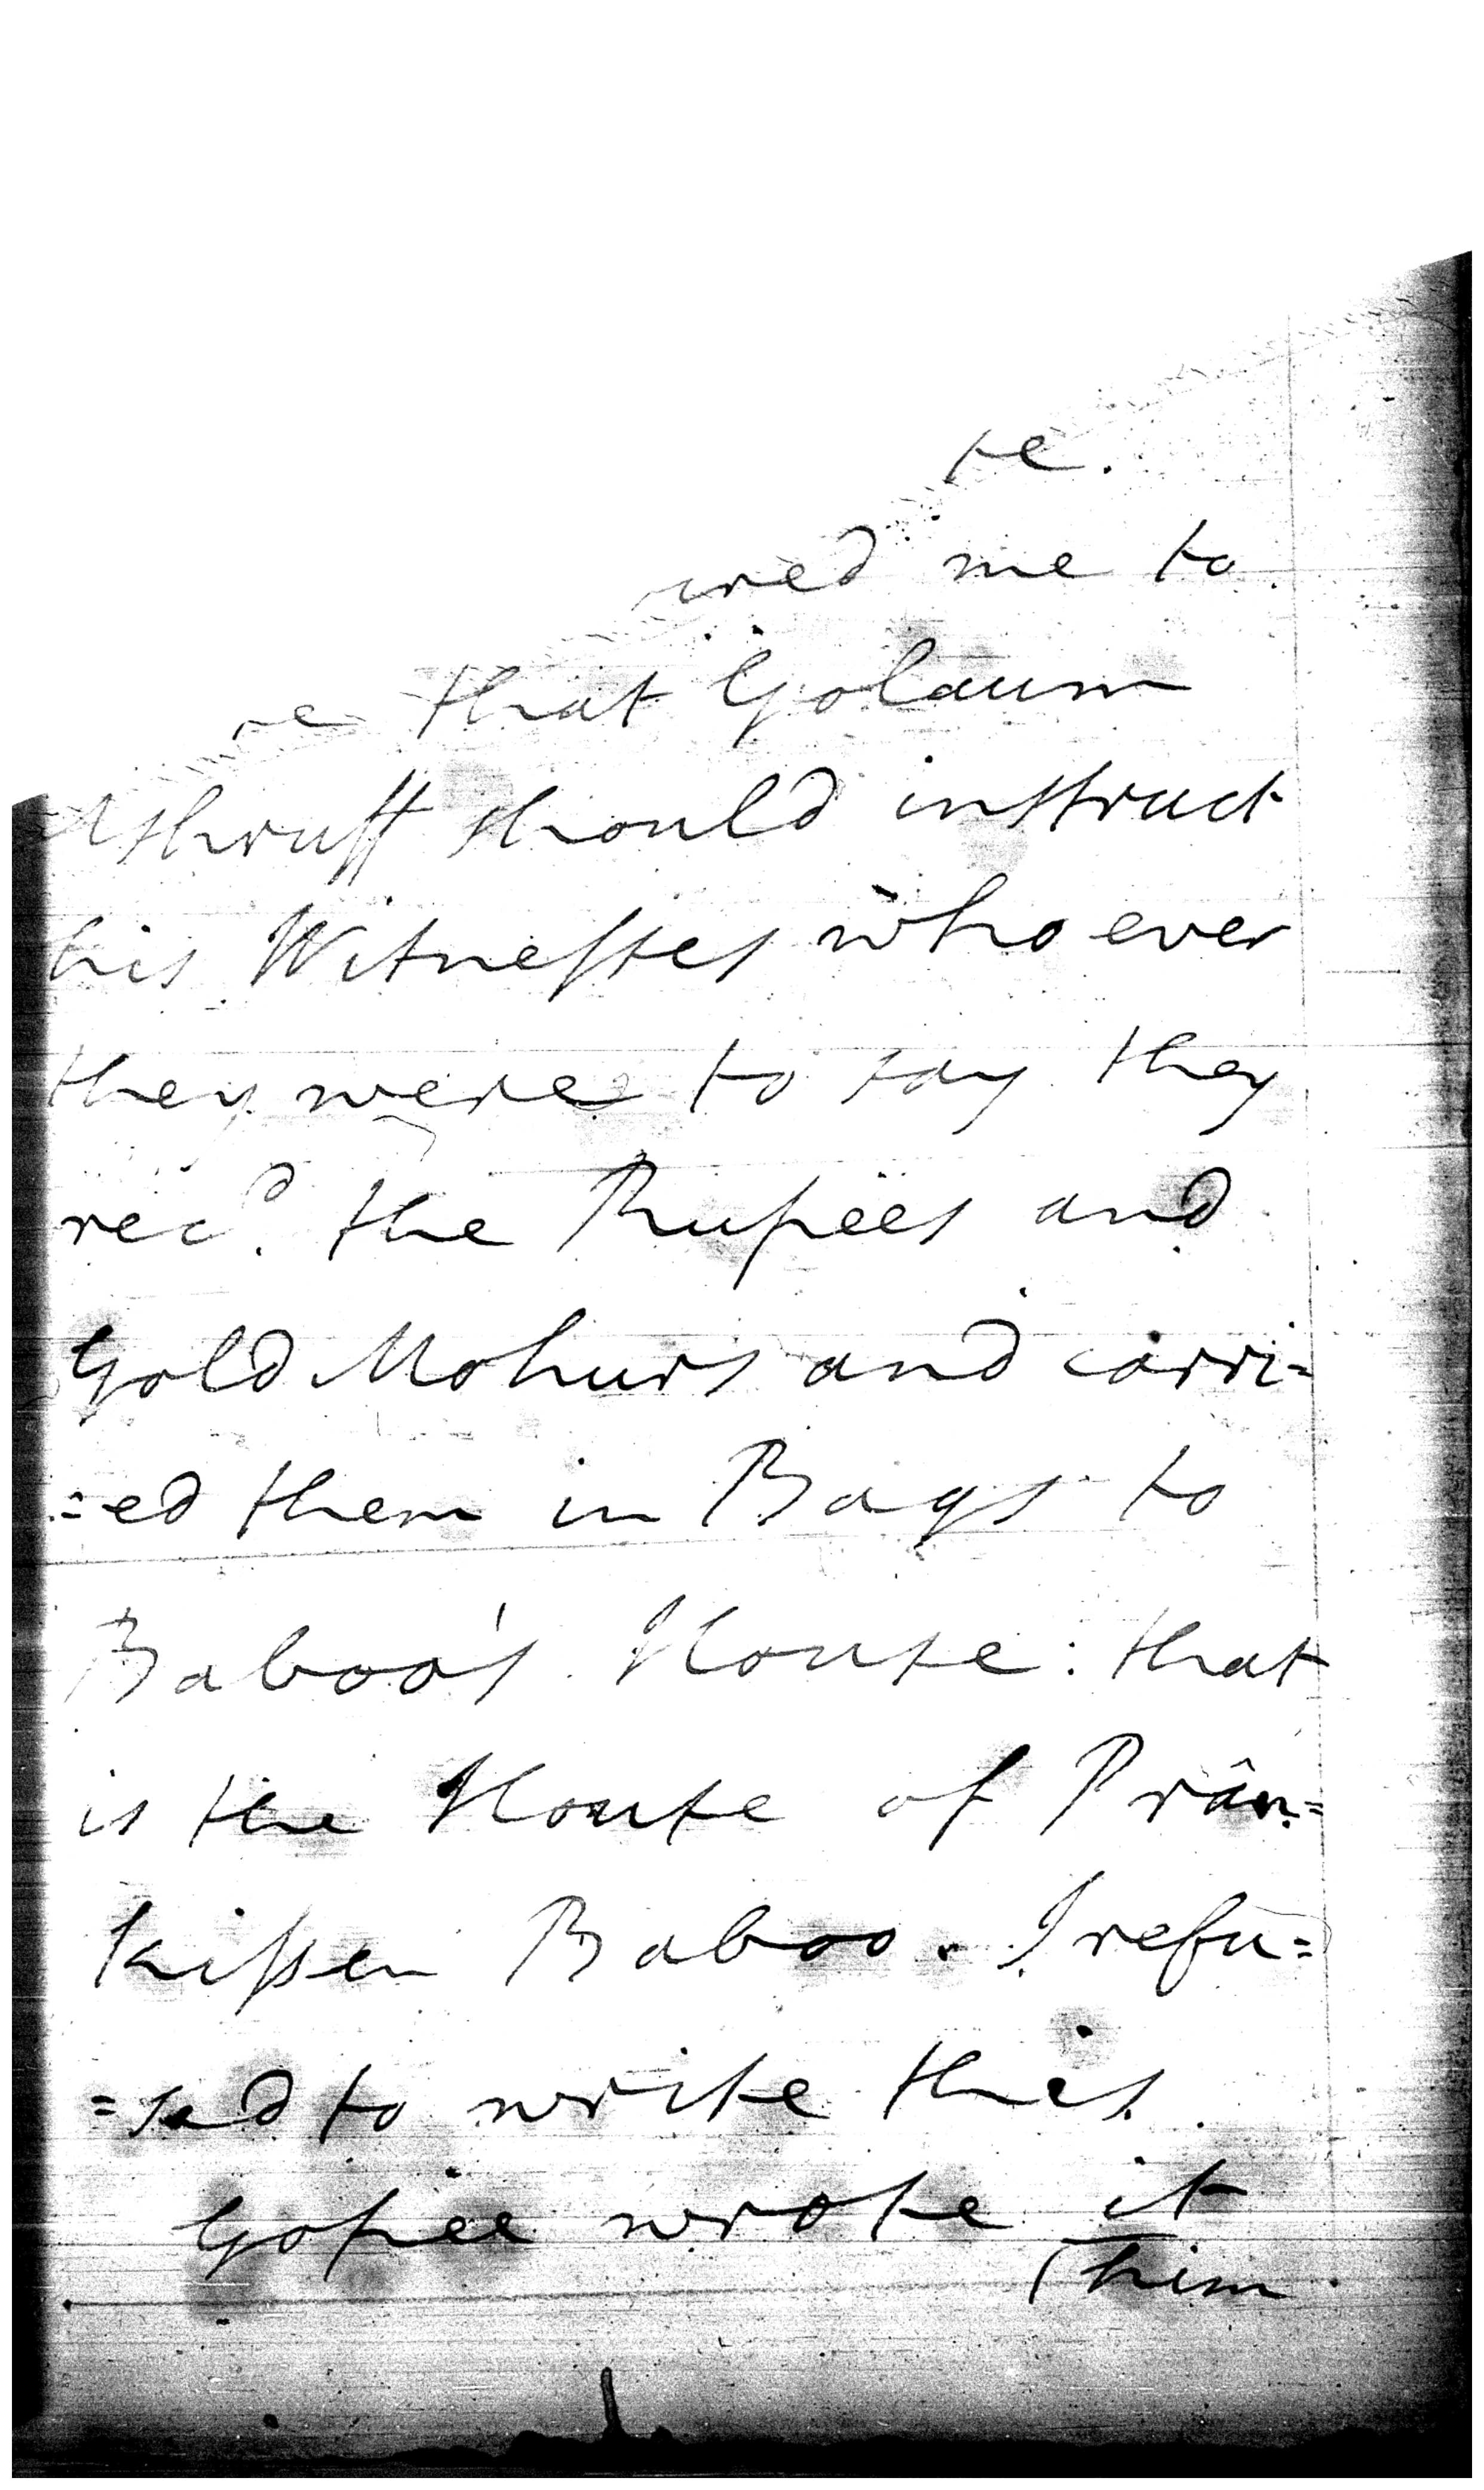 te.
ired me to
re that Golaum
Ashruff should instruct
his Witnesses whoever
they were to say they
rec.d the Rupees and
Gold Mohurs and carri=
=ed them in Bags to
Baboo's House: that
is the House of Prân=
kissen Baboo. I refu=
=sed to write this.
Gopee wrote it
(him